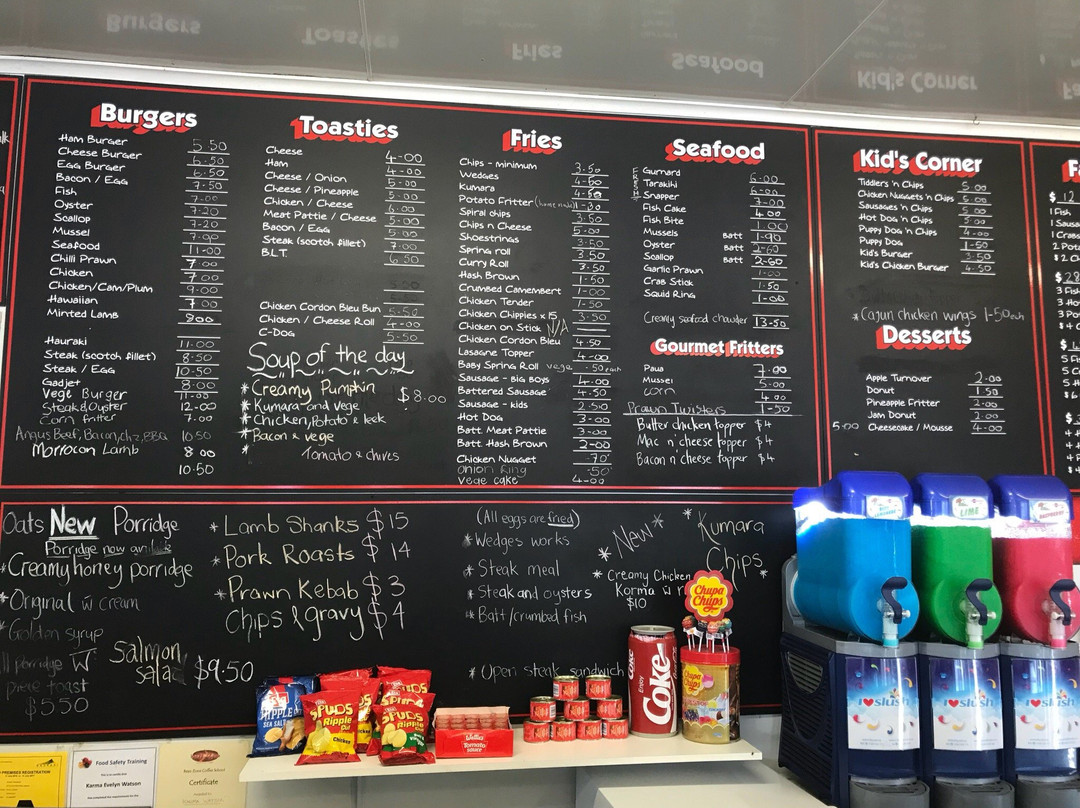 Burgers
Ham Burger 5.50
Cheese Burger 6.50
Egg Burger 6.50
Bacon / Egg 7.50
Fish 7.00
Oyster 7.20
Scallop 7.20
Mussel 7.00
Seafood 11.00
Chilli Prawn 7.00
Chicken 7.00
Chicken/Cam/Plum 9.00
Hawaiian 7.00
Minted Lamb 9.00
Hauraki 11.00
Steak (scotch fillet) 8.50
Steak / Egg 10.50
Gadjet 8.00
Vege Burger 11.00
Steak & Oyster 12.00
Corn fritter 7.00
Angus Beef, Bacon, chz, BBQ 10.50
Morrocon Lamb 8.00
10.50
Toasties
Cheese 4-00
Ham 4-00
Cheese / Onion 5-00
Cheese / Pineapple 5-00
Chicken / Cheese 6.00
Meat Pattie / Cheese 5-00
Bacon / Egg 5.00
Steak (scotch fillet) 7.00
B.L.T. 6.50
Chicken Cordon Bleu Bun 5.50
Chicken / Cheese Roll 4-00
C-Dog 5.50
Soup of the day
* Creamy Pumpkin $8.00
* Kumara and Vege
* Chicken, Potato & leek
* Bacon & vege
* Tomato & chives
Fries
Chips - minimum 3.50
Wedges 4-60
Kumara 4-50
Potato Fritter (home made) 1-30
Spiral chips 3.50
Chips n Cheese 5.00
Shoestrings 3.50
Spring roll 3.50
Curry Roll 3.50
Hash Brown 1.50
Crumbed Camembert 1-00
Chicken Tender 1-50
Chicken Chippies x 15 3.50
Chicken on Stick N/A
Chicken Cordon Bleu 4.50
Lasagne Topper 4-00
Baby Spring Roll vege .50 each
Sausage - big boys 4.00
Battered Sausage 4.50
Sausage - kids 2.50
Hot Dog 3-00
Batt. Meat Pattie 3-00
Batt. Hash Brown 2-00
Chicken Nugget .70
Onion Ring .50
Vege cake 4-00
Seafood
FRESH
Gurnard 6.00
Tarakihi 6-00
Snapper 7-00
Fish Cake 4.00
Fish Bite 1.00
Mussels Batt 1-90
Oyster Batt 2-60
Scallop Batt 2-60
Garlic Prawn 1-00
Crab Stick 1-50
Squid Ring 1-00
Creamy seafood chowder 13.50
Gourmet Fritters
Paua 7.00
Mussel 5.00
Corn 4.00
Prawn Twisters 1-50
Butter chicken topper $4
Mac n' cheese topper $4
Bacon n' cheese topper $4
Kid's Corner
Tiddlers 'n Chips 5.00
Chicken Nuggets 'n Chips 5.00
Sausages 'n Chips 5.00
Hot Dog 'n Chips 5.00
Puppy Dog 'n Chips 4-00
Puppy Dog 1-50
Kid's Burger 3.50
Kid's Chicken Burger 4.50
* Cajun chicken wings 1-50 each
Desserts
Apple Turnover 2-00
Donut 1.50
Pineapple Fritter 2-00
Jam Donut 2.00
5.00 Cheesecake / Mousse 4-00
$12
1 Fish
1 Sausa
1 Crabs
2 Potat
$28
Oats New Porridge
Porridge now available
* Creamy honey porridge
* Original w cream
* Golden syrup
All porridge w
piece toast
$5.50
Salmon
salad $9.50
* Lamb Shanks $15
* Pork Roasts $14
* Prawn Kebab $3
Chips & gravy $4
(All eggs are fried)
* Wedges works
* Steak meal
* Steak and oysters
* Batt/crumbed fish
* Open steak sandwich
* New *
* Kumara
Chips *
* Creamy Chicken
Korma w r
$10
Chupa
Chups
Enjoy
Coke
RIPPLE
SEA SALT
SPUDS
Ripple
Chicken
SPUDS
Ripple
Wattie's
Tomato
sauce
LIME
I ♥ slush
I ♥ slush
I ♥ slush
PREMISES REGISTRATION
Food Safety Training
Karma Evelyn Watson
Certificate